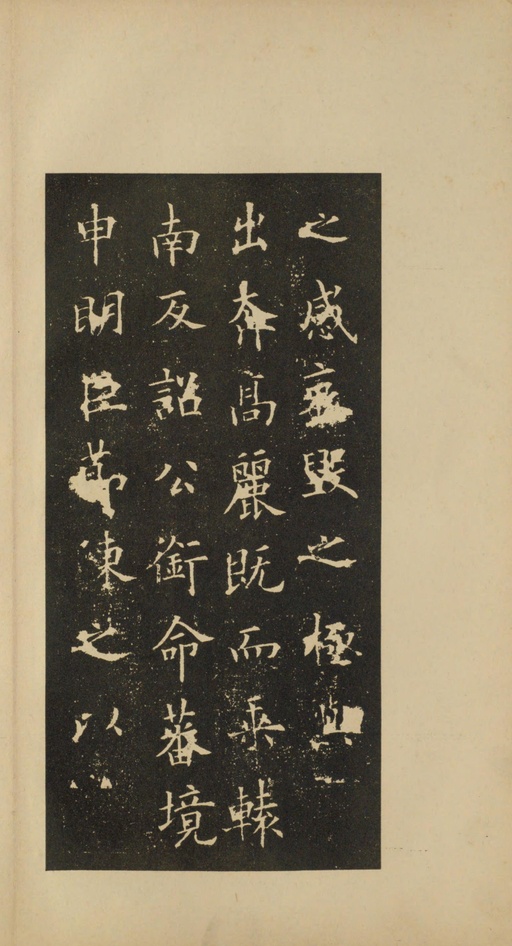 之感哀毀之極
出奔髙麗既而乘轅
南反詔公銜命蕃境
申明臣節陳之以